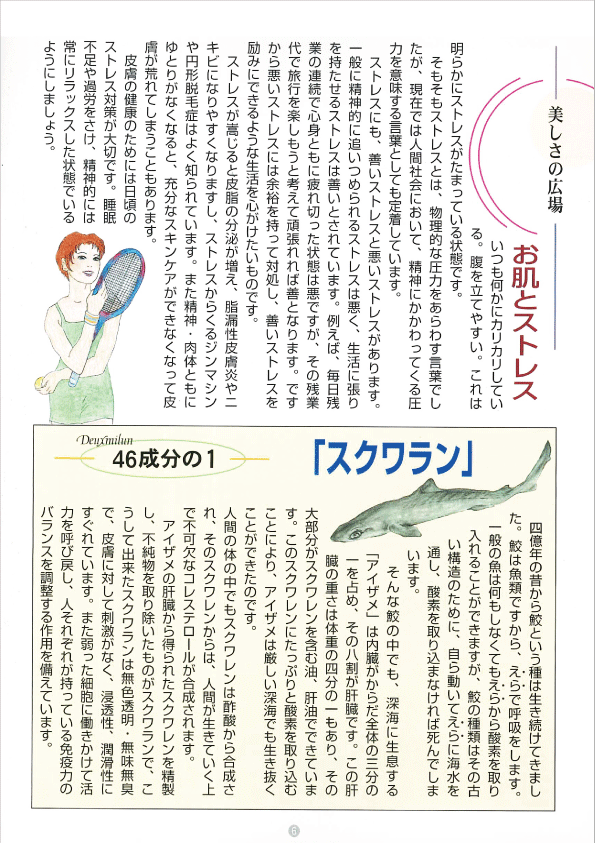 美しさの広場
お肌とストレス
いつも何かにカリカリしてい
る。腹を立てやすい。これは
明らかにストレスがたまっている状態です。
そもそもストレスとは、物理的な圧力をあらわす言葉でし
たが、現在では人間社会において、精神にかかわってくる圧
力を意味する言葉としても定着しています。
ストレスにも、善いストレスと悪いストレスがあります。
一般に精神的に追いつめられるストレスは悪く、生活に張り
を持たせるストレスは善いとされています。例えば、毎日残
業の連続で心身ともに疲れ切った状態は悪ですが、その残業
代で旅行を楽しもうと考えて頑張れれば善となります。です
から悪いストレスには余裕を持って対処し、善いストレスを
励みにできるような生活を心がけたいものです。
ストレスが嵩じると皮脂の分泌が増え、脂漏性皮膚炎やニ
キビになりやすくなりますし、ストレスからくるジンマシン
や円形脱毛症はよく知られています。また精神・肉体ともに
ゆとりがなくなると、充分なスキンケアができなくなって皮
膚が荒れてしまうこともあります。
皮膚の健康のためには日頃の
ストレス対策が大切です。睡眠
不足や過労をさけ、精神的には
常にリラックスした状態でいる
ようにしましょう。
Deuxmilun
46成分の1
「スクワラン」
四億年の昔から鮫という種は生き続けてきまし
た。鮫は魚類ですから、えらで呼吸をします。
一般の魚は何もしなくてもえらから酸素を取り
入れることができますが、鮫の種類はその古
い構造のために、自ら動いてえらに海水を
通し、酸素を取り込まなければ死んでしま
います。
そんな鮫の中でも、深海に生息する
「アイザメ」は内臓がからだ全体の三分の
一を占め、その八割が肝臓です。この肝
臓の重さは体重の四分の一もあり、その
大部分がスクワレンを含む油、肝油でできていま
す。このスクワレンにたっぷりと酸素を取り込む
ことにより、アイザメは厳しい深海でも生き抜く
ことができたのです。
人間の体の中でもスクワレンは酢酸から合成さ
れ、そのスクワレンからは、人間が生きていく上
で不可欠なコレステロールが合成されます。
アイザメの肝臓から得られたスクワレンを精製
し、不純物を取り除いたものがスクワランで、こ
うして出来たスクワランは無色透明・無味無臭
で、皮膚に対して刺激がなく、浸透性、潤滑性に
すぐれています。また弱った細胞に働きかけて活
力を呼び戻し、人それぞれが持っている免疫力の
バランスを調整する作用を備えています。
6